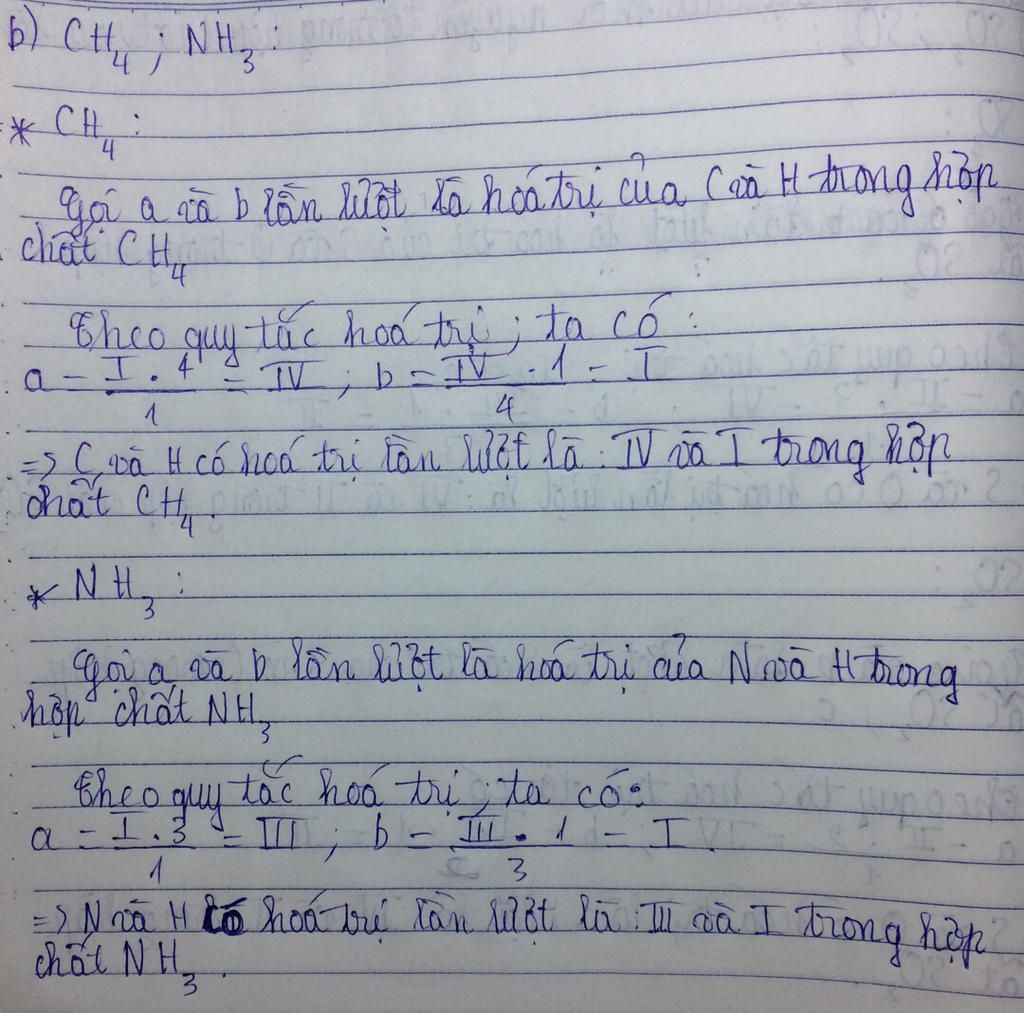 b) CH₄ ; NH₃ :
* CH₄ :
Gọi a và b lần lượt là hoá trị của C và H trong hợp
chất CH₄
Theo quy tắc hoá trị ; ta có :
a = I . 4 / 1 = IV ; b = IV . 1 / 4 = I
=> C và H có hoá trị lần lượt là : IV và I trong hợp
chất CH₄ .
* NH₃ :
Gọi a và b lần lượt là hoá trị của N và H trong
hợp chất NH₃
Theo quy tắc hoá trị , ta có :
a = I . 3 / 1 = III ; b = III . 1 / 3 = I .
=> N và H có hoá trị lần lượt là : III và I trong hợp
chất NH₃ .